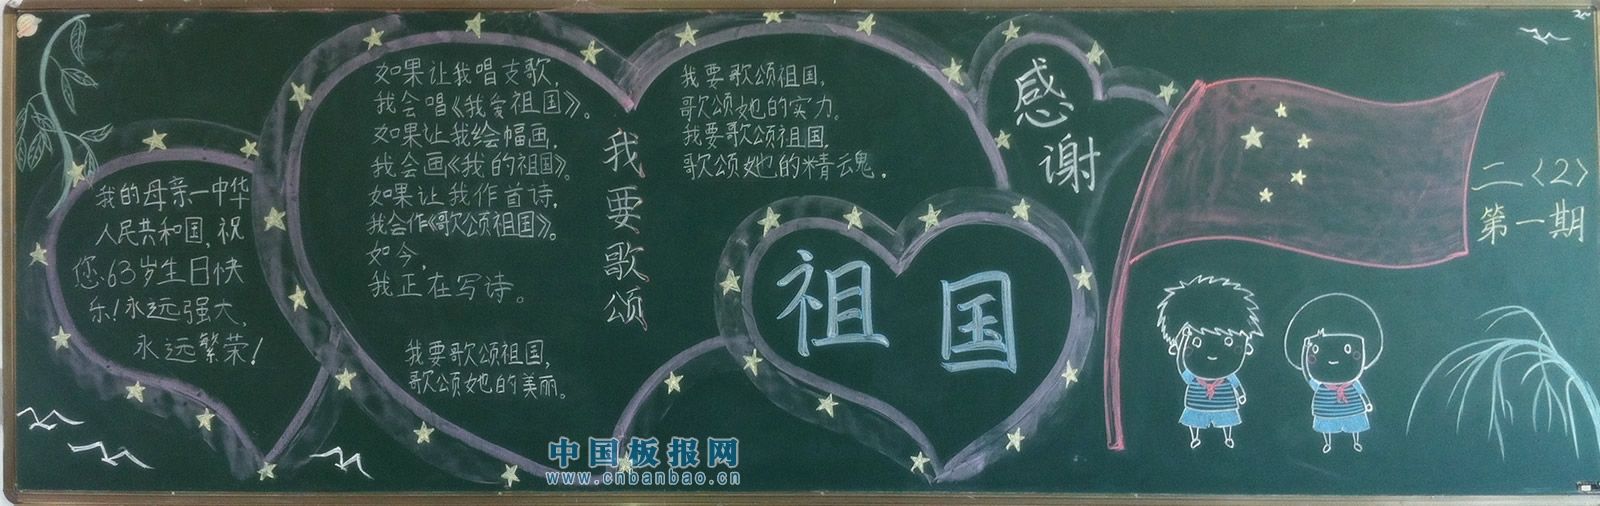 我的母亲—中华
人民共和国,祝
您:63岁生日快
乐!永远强大,
永远繁荣!
如果让我唱支歌,
我会唱《我爱祖国》。
如果让我绘幅画,
我会画《我的祖国》。
如果让我作首诗,
我会作《歌颂祖国》。
如今,
我正在写诗。
我要歌颂祖国,
歌颂她的美丽。
我要歌颂
我要歌颂祖国,
歌颂她的实力。
我要歌颂祖国,
歌颂她的精魂。
感谢
祖国
二〈2〉
第一期
中国板报网
www.cnbanbao.cn